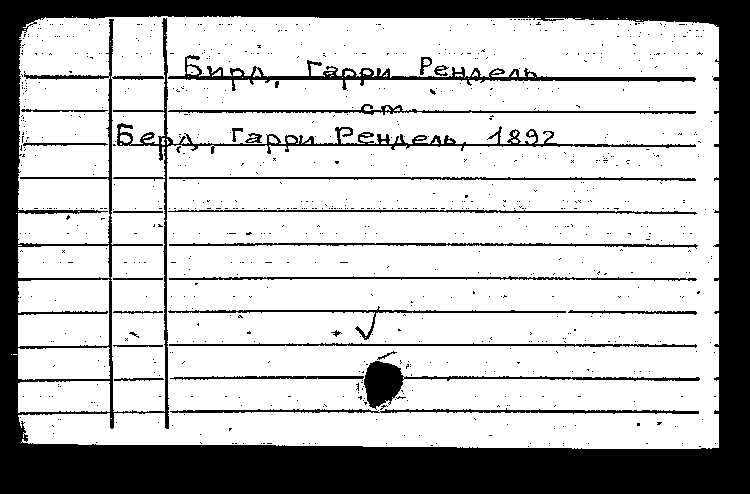 Бирд, Гарри Рендель
см.
Берд, Гарри Рендель, 1892